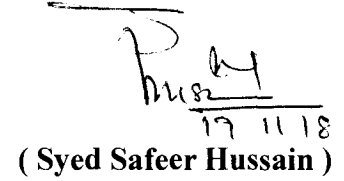 17 11 18
( Syed Safeer Hussain )